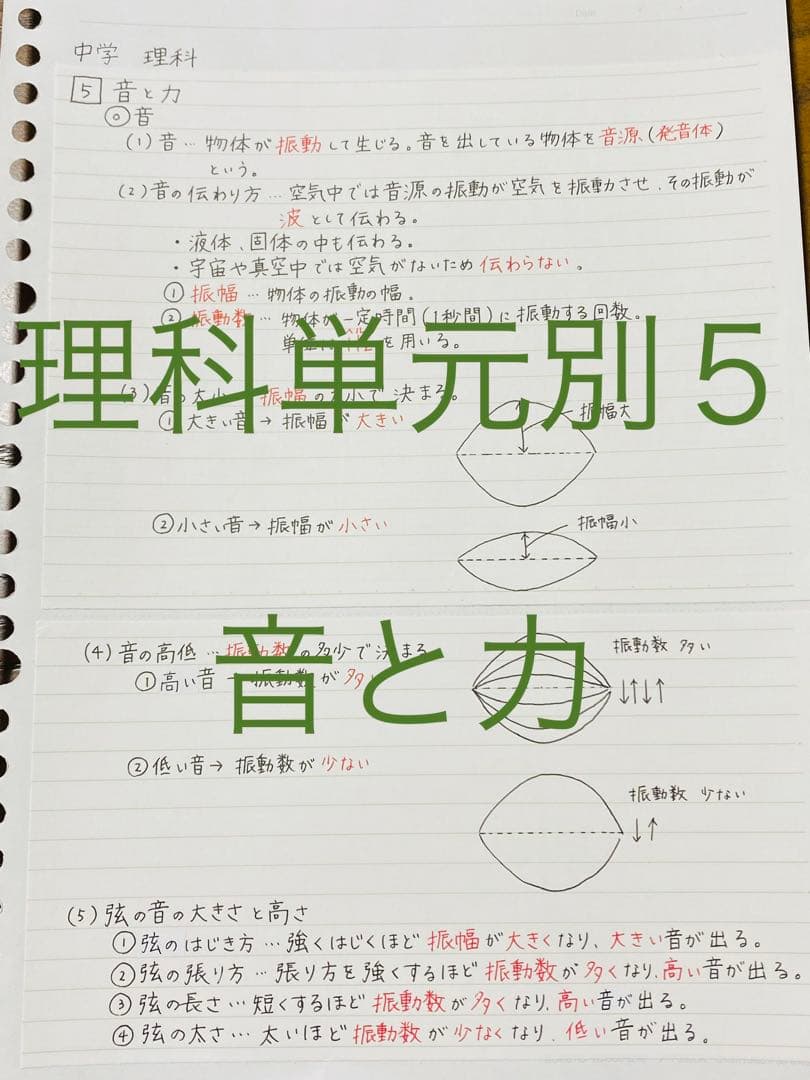 中学 理科
5 音と力
◎音
(1)音…物体が振動して生じる。音を出している物体を音源(発音体)
という。
(2)音の伝わり方…空気中では音源の振動が空気を振動させ、その振動が
波として伝わる。
・液体、固体の中も伝わる。
・宇宙や真空中では空気がないため伝わらない。
①振幅…物体の振動の幅。
②振動数…物体が一定時間(1秒間)に振動する回数。
を用いる。
理科単元別5
(3) 振幅の大小で決まる。
①大きい音→振幅が大きい
振幅大
②小さい音→振幅が小さい
振幅小
音と力
(4)音の高低…振動数の多少で決まる
①高い音→振動数が多い
振動数 多い
↓↑↓↑
②低い音→振動数が少ない
振動数 少ない
↓↑
(5)弦の音の大きさと高さ
①弦のはじき方…強くはじくほど振幅が大きくなり、大きい音が出る。
②弦の張り方…張り方を強くするほど振動数が多くなり、高い音が出る。
③弦の長さ…短くするほど振動数が多くなり、高い音が出る。
④弦の太さ…太いほど振動数が少なくなり、低い音が出る。